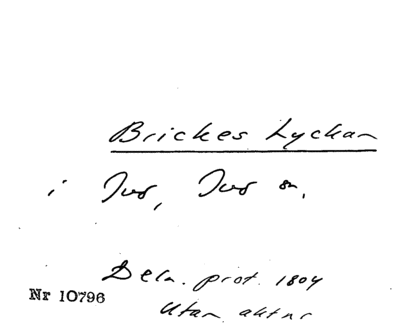 Brickes Lyckan
i Ivö, Ivö sn.
Deln. prot. 1804
Nr 10796
Utan aktnr